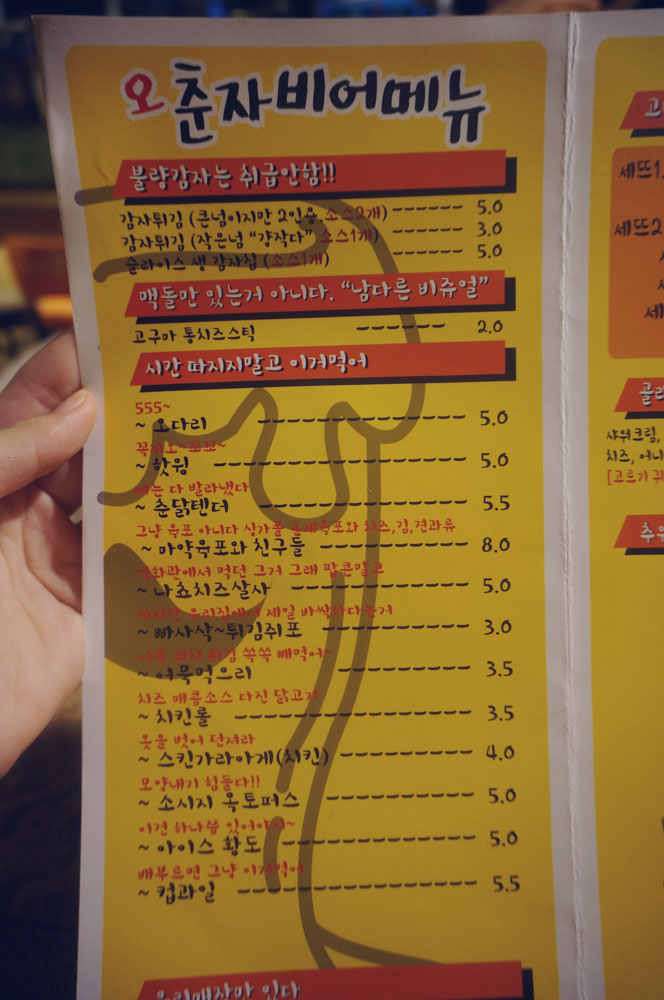 오춘자비어메뉴
불량감자는 취급안함!!
감자튀김 (큰넘이지만 2인용. 소스2개) ------ 5.0
감자튀김 (작은넘 "걍작다" 소스1개) ------ 3.0
슬라이스 생 감자칩 (소스1개) ------ 5.0
맥돌만 있는거 아니다. "남다른 비쥬얼"
고구마 통치즈스틱 ------ 2.0
시간 따지지말고 이거먹어
555~
~ 오다리 ------ 5.0
꼭끼오~꼬꼬~
~ 핫윙 ------ 5.0
뼈는 다 발라냈다
~ 춘닭텐더 ------ 5.5
그냥 육포 아니다 싱가폴 훈제육포와 치즈,김,견과류
~ 마약육포와 친구들 ------ 8.0
영화관에서 먹던 그거 그래 팝콘말고
~ 나쵸치즈살사 ------ 5.0
우리집에서 제일 바싹하다는거
~ 빠사삭~튀김쥐포 ------ 3.0
꼬치 튀김 쏙쏙 빼먹어~
~ 어묵먹으리 ------ 3.5
치즈 매콤소스 다진 닭고기
~ 치킨롤 ------ 3.5
옷을 벗어 던져라
~ 스킨가라아게(치킨) ------ 4.0
모양내기 힘들다!!
~ 소시지 옥토퍼스 ------ 5.0
이건 하나쯤 있어야지~
~ 아이스 황도 ------ 5.0
배부르면 그냥 이거먹어
~ 컵과일 ------ 5.5
우리매장만 있다
세뜨1.
세뜨2
샤워크림,
치즈, 어니
[고르기 귀